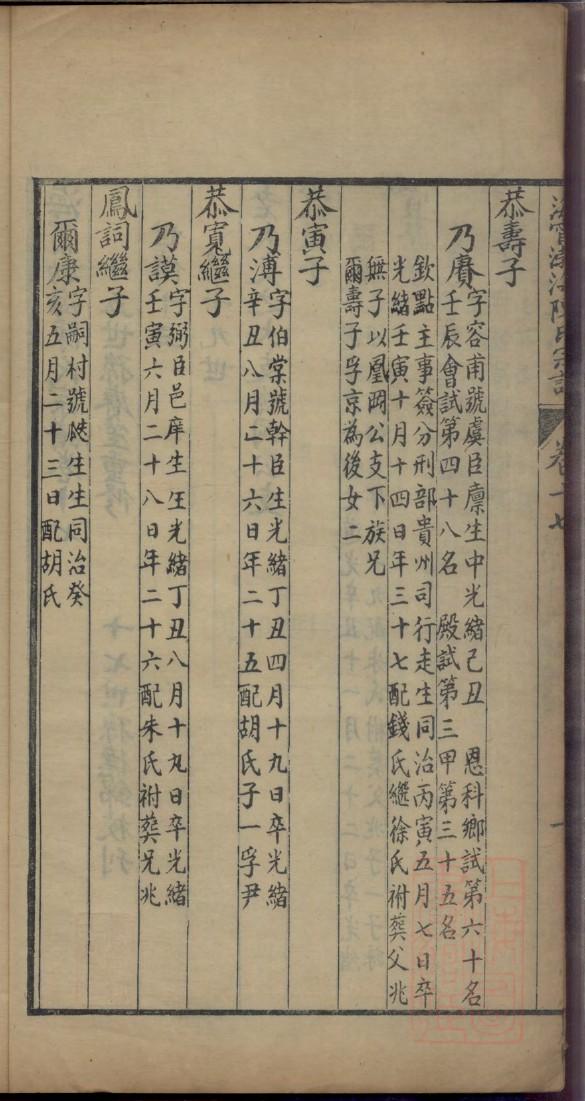 陳氏宗譜 卷十七 一
恭壽子
乃賡字容甫號虞臣廪生中光緒己丑 恩科鄉試第六十名
壬辰會試第四十八名 殿試第三甲第三十五名
欽點主事簽分刑部貴州司行走生同治丙寅五月七日卒
光緒壬寅十月十四日年三十七配錢氏繼徐氏祔葬父兆
無子以鳳岡公支下族兄
爾壽子孚京為後女二
恭寅子
乃溥字伯棠號幹臣生光緒丁丑四月十九日卒光緒
辛丑八月二十六日年二十五配胡氏子一孚尹
恭寬繼子
乃謨字弼臣邑庠生生光緒丁丑八月十九日卒光緒
壬寅六月二十八日年二十六配朱氏祔葬兄兆
鳳詞繼子
爾康字嗣村號 生生同治癸
亥五月二十三日配胡氏